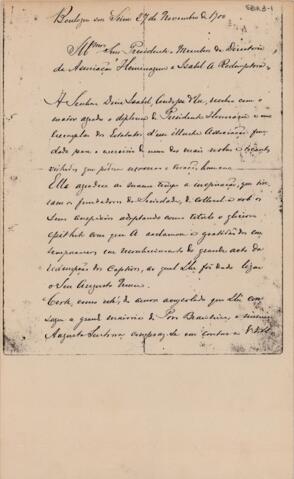 Boulogne sur Seine 27 de Novembro de 1900
Illmos Snrs Presidente e Membros da Directoria
da Associação Homenagem a Isabel A Redemptora
A Senhora Dona Isabel, Condessa d'Eu, recebeu com o
maior apreço o diploma de Presidente Honoraria e um
exemplar dos Estatutos d'essa illustre Associação, fun
dada para o exercicio de uma das mais nobres e
virtudes que podem o coração humano.
Ella agradece ao mesmo tempo a inspiração que ti
veram os fundadores da Sociedade, de collocal-a sob os
Seus auspicios adoptando como titulo o glorioso
epitheto com que A acclamou a gratidão
em reconhecimento do grande acto da
redempção dos Captivos, ao qual Lhe foi dado ligar
o Seu Augusto Nome.
Certa, como está, do amor que Lhe con
sagra a grande maioria do Povo Brasileiro, a mesma
Augusta Senhora, compraz-se em contar a